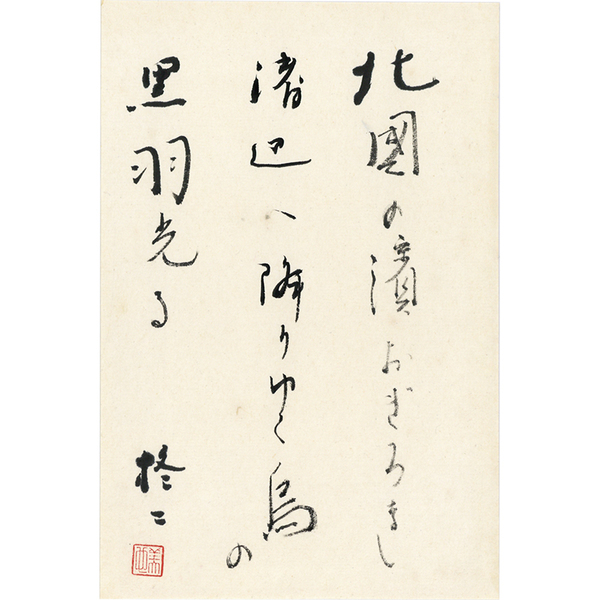 北國の濱おぎろなし
渚辺へ降りゆく烏の
黒羽光る
柊二
美也